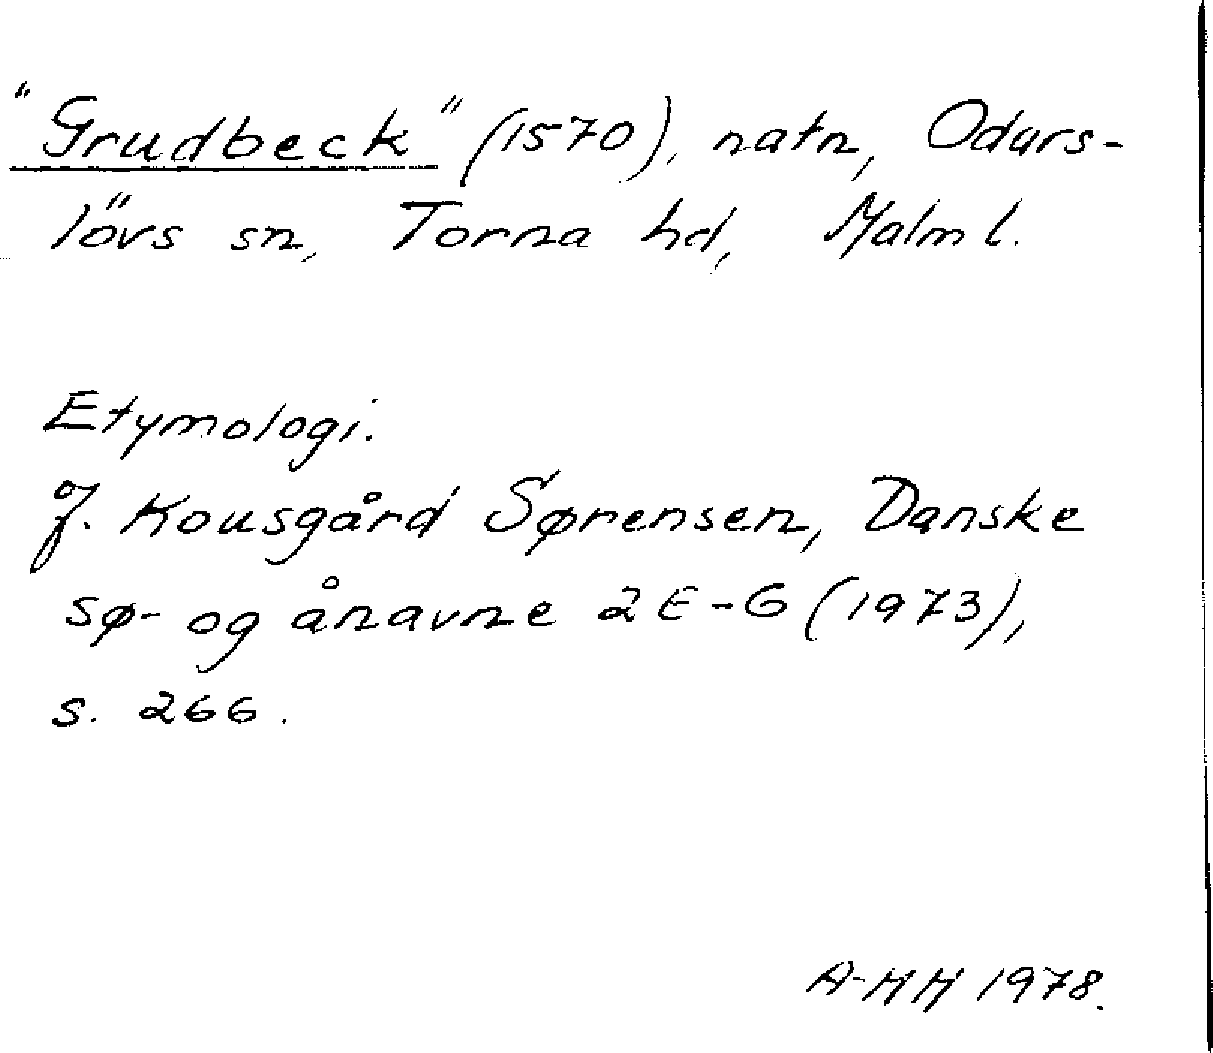 "Grudbeck" (1570), natn, Odars-
lövs sn, Torna hd, Malm l.
Etymologi.
J. Kousgård Sørensen, Danske
sø- og ånavne 2 E-G (1973),
s. 266.
A-HH 1978.